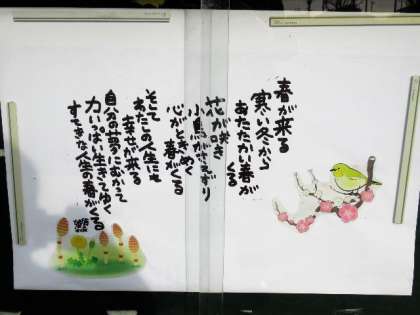 春が来る
寒い冬から
あたたかい春が
くる
花が咲き
小鳥がさえずり
心がときめく
春がくる
そして
わたしの人生にも
幸せが来る
自分の夢にむかって
力いっぱい生きてゆく
すてきな人生の春がくる